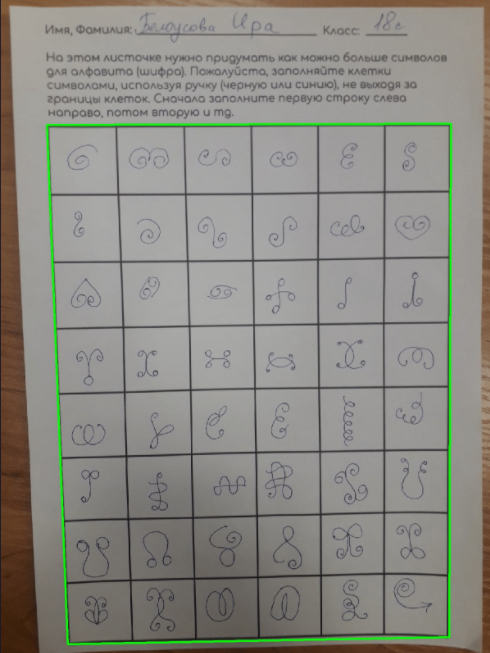 Имя, Фамилия: Белоусова Ира Класс: 18с
На этом листочке нужно придумать как можно больше символов
для алфавита (шифра). Пожалуйста, заполняйте клетки
символами, используя ручку (черную или синию), не выходя за
границы клеток. Сначала заполните первую строку слева
направо, потом вторую и тд.